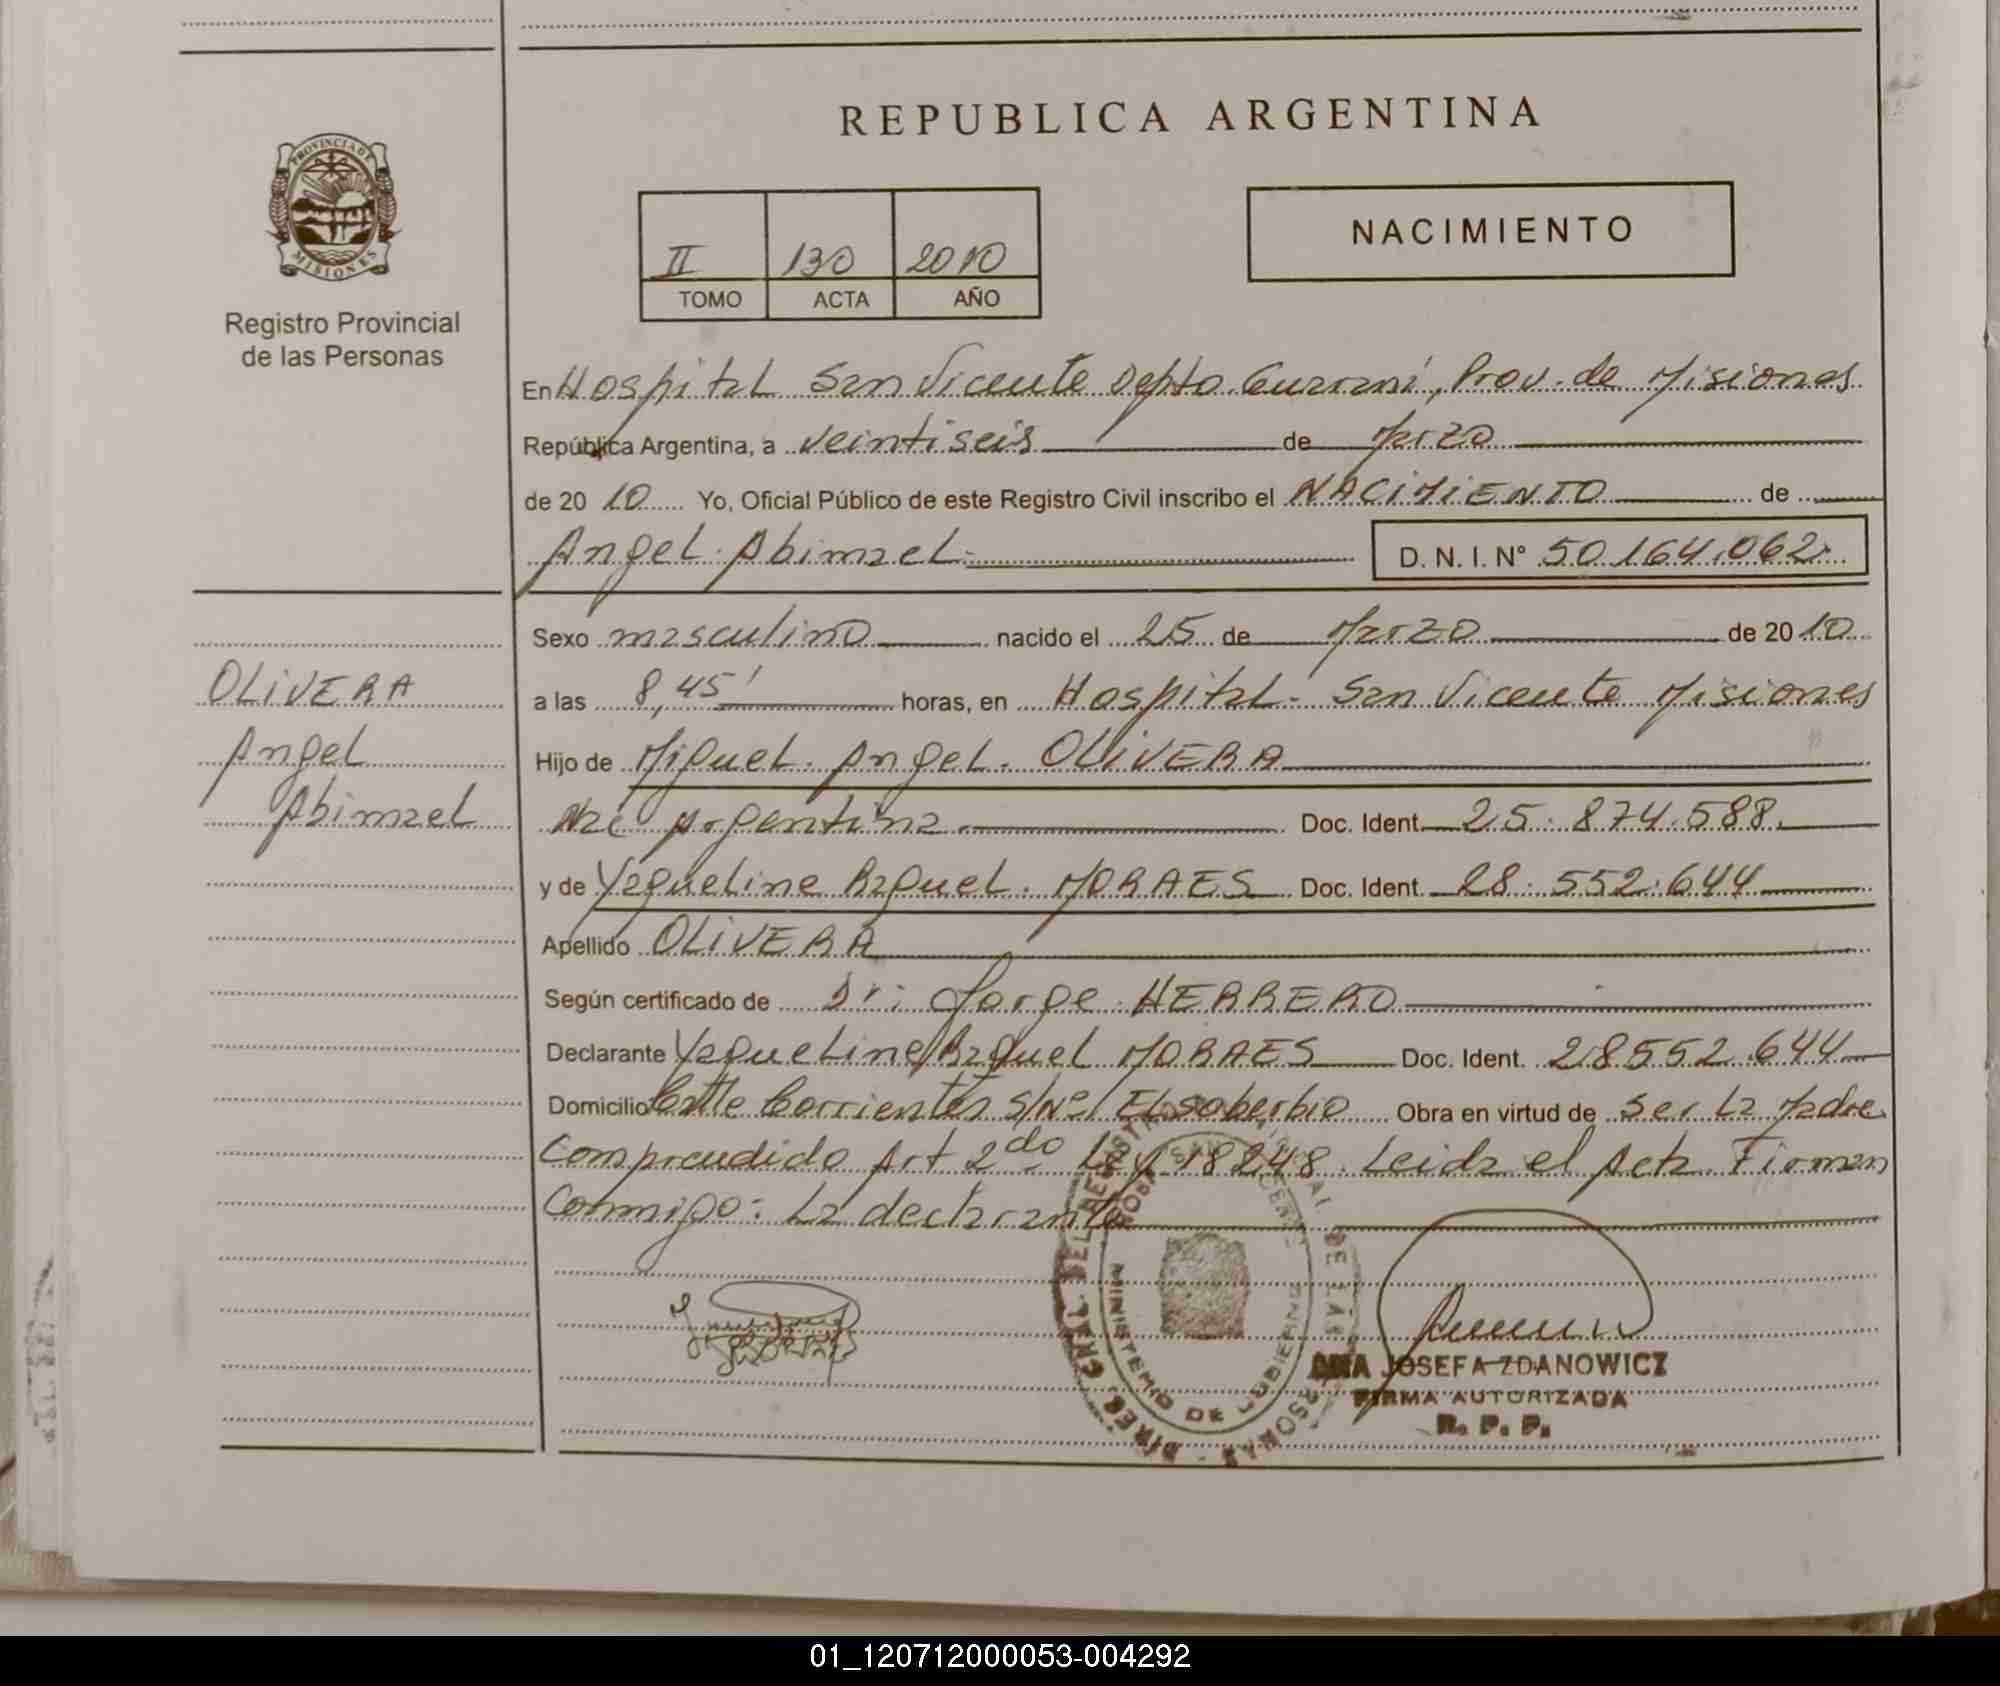 REPUBLICA ARGENTINA
PROVINCIA DE
MISIONES
Registro Provincial
de las Personas
II 130 2010
TOMO ACTA AÑO
NACIMIENTO
En Hospital San Vicente Depto. Guaraní, Prov. de Misiones
República Argentina, a veintiseis de Marzo
de 20 10 Yo, Oficial Público de este Registro Civil inscribo el NACIMIENTO de
Angel Abimael D. N. I. N° 50.164.062
Sexo masculino nacido el 25 de Marzo de 20 10
OLIVERA
Angel
Abimael
a las 8,45' horas, en Hospital San Vicente Misiones
Hijo de Miguel Angel OLIVERA
Nac Argentina Doc. Ident. 25.874.588
y de Yaqueline Raquel MORAES Doc. Ident. 28.552.644
Apellido OLIVERA
Según certificado de Dr: Jorge HERRERO
Declarante Yaqueline Raquel MORAES Doc. Ident. 28552.644
Domicilio Calle Corrientes S/Nº/ El soberbio Obra en virtud de ser la Madre
Comprendido Art 2do Ley 18248. Leida el Acta Firman
Conmigo: La declarante
MINISTERIO DE GOBIERNO
ANA JOSEFA ZDANOWICZ
FIRMA AUTORIZADA
R. P. P.
01_120712000053-004292